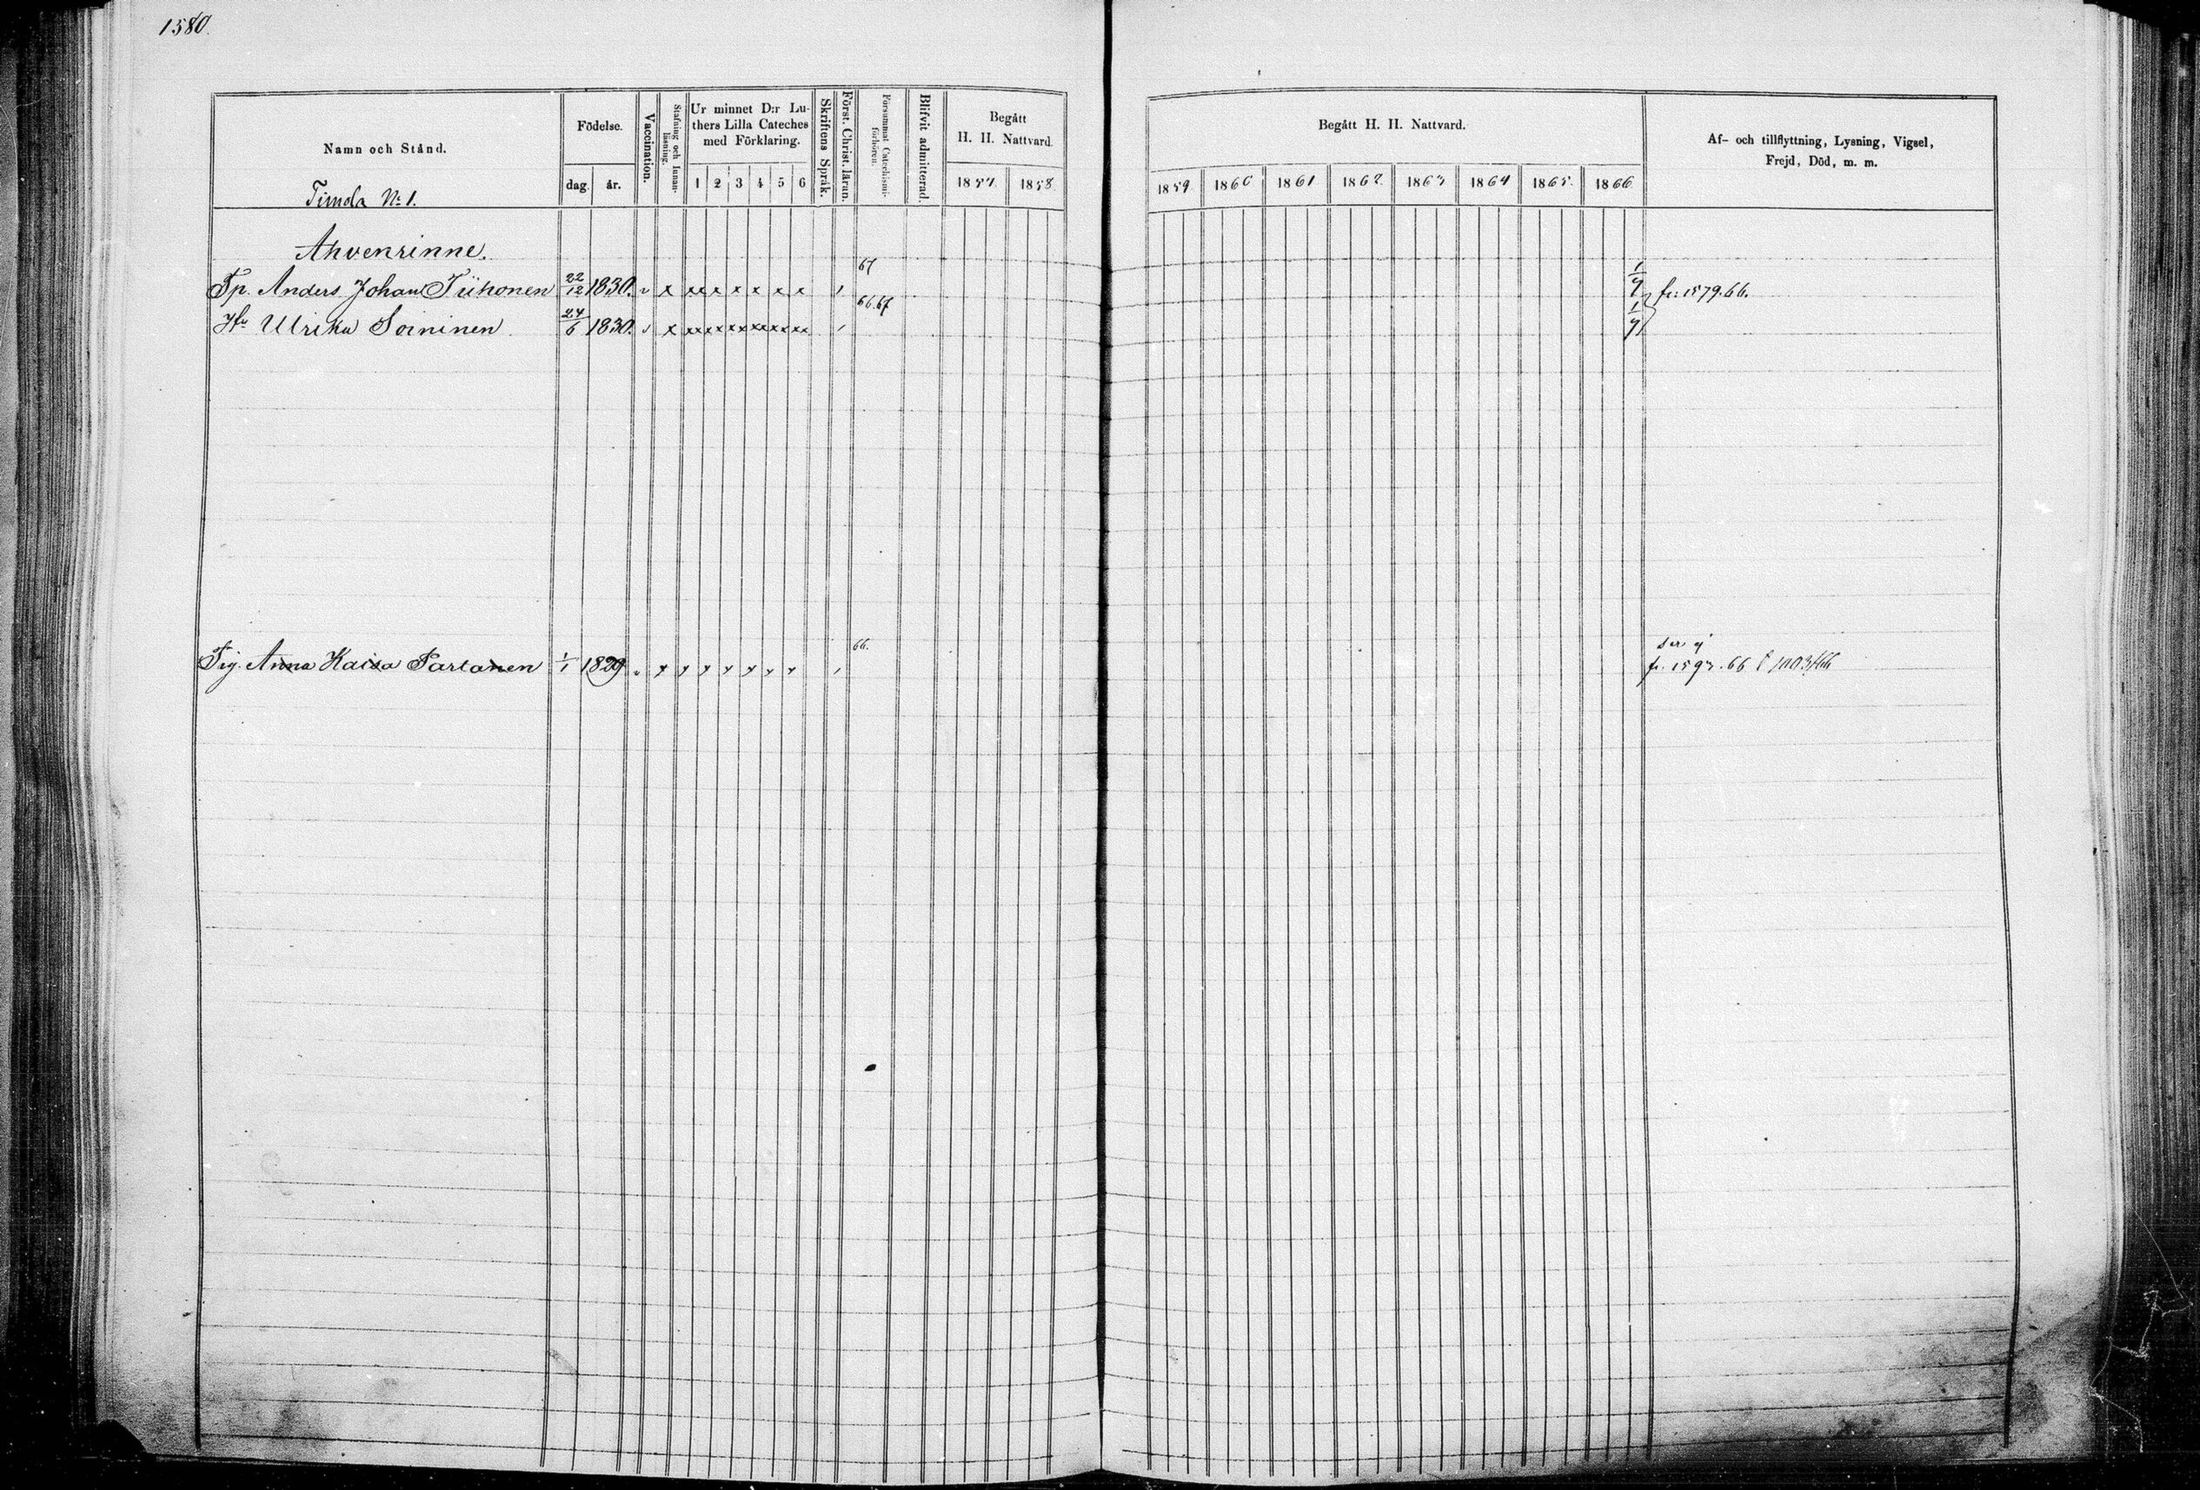 1580.
Namn och Stånd.
Födelse.
dag.
år.
Vaccination.
Stafning och Innan-
läsning.
Ur minnet D:r Lu-
thers Lilla Cateches
med Förklaring.
1 2 3 4 5 6
Skriftens Språk.
Först. Christ. läran.
Försummat Catechismi-
förhören.
Blifvit admitterad.
Begått
H. H. Nattvard.
1857. 1858.
Begått H. H. Nattvard.
1859. 1860 1861 1862 1863 1864 1865. 1866
Af- och tillflyttning, Lysning, Vigsel,
Frejd, Död, m. m.
N:1.
Ahvenrinne.
67
Tp. Anders Johan Tiihonen 22/12 1830. v x xx x x x x x 1/9 fr: 1579.66.
66.67
Hu Ulrika Soininen 24/6 1830. v x 1/9
66.
Anna Kaisa Partanen 1/1 1829
fr. 1593.66